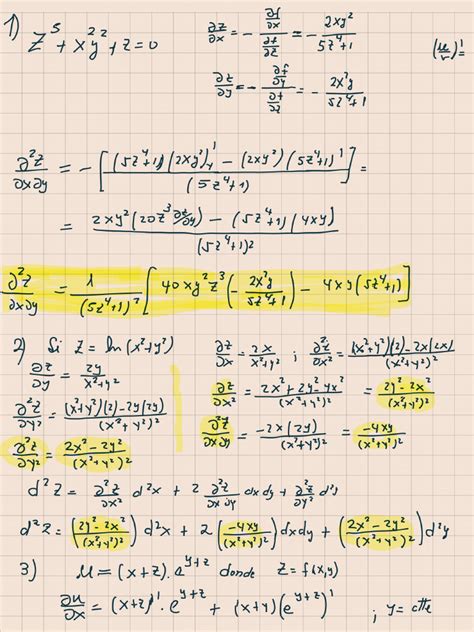 1) z⁵ + xy²² + z = 0
∂z/∂x = - (∂f/∂x)/(∂f/∂z) = - 2xy²/(5z⁴+1)
(u/v)'
∂z/∂y = - (∂f/∂y)/(∂f/∂z) = - 2x²y/(5z⁴+1)
∂²z/∂x∂y = - [((5z⁴+1)(2xy²)'y - (2xy²)(5z⁴+1)')/(5z⁴+1)] =
= (2xy²(20z³ ∂z/∂y) - (5z⁴+1)(4xy))/(5z⁴+1)²
∂²z/∂x∂y = 1/(5z⁴+1)² [40xy²z³(- 2x²y/(5z⁴+1)) - 4xy(5z⁴+1)]
2) Si z = ln(x²+y²)
∂z/∂x = 2x/(x²+y²) ; ∂²z/∂x² = ((x²+y²)(2) - 2x(2x))/(x²+y²)²
∂z/∂y = 2y/(x²+y²)
∂²z/∂x² = (2x²+2y²-4x²)/(x²+y²)² = (2y²-2x²)/(x²+y²)²
∂²z/∂y² = ((x²+y²)(2) - 2y(2y))/(x²+y²)²
∂²z/∂x∂y = -2x(2y)/(x²+y²)² = -4xy/(x²+y²)²
∂²z/∂y² = (2x²-2y²)/(x²+y²)²
d²z = ∂²z/∂x² d²x + 2 ∂²z/∂x∂y dxdy + ∂²z/∂y² d²y
d²z = ((2y²-2x²)/(x²+y²)²) d²x + 2(-4xy/(x²+y²)²) dxdy + ((2x²-2y²)/(x²+y²)²) d²y
3) u = (x+z).e^(y+z) donde z = f(x,y)
∂u/∂x = (x+z)'.e^(y+z) + (x+y)(e^(y+z))' ; y = ctte